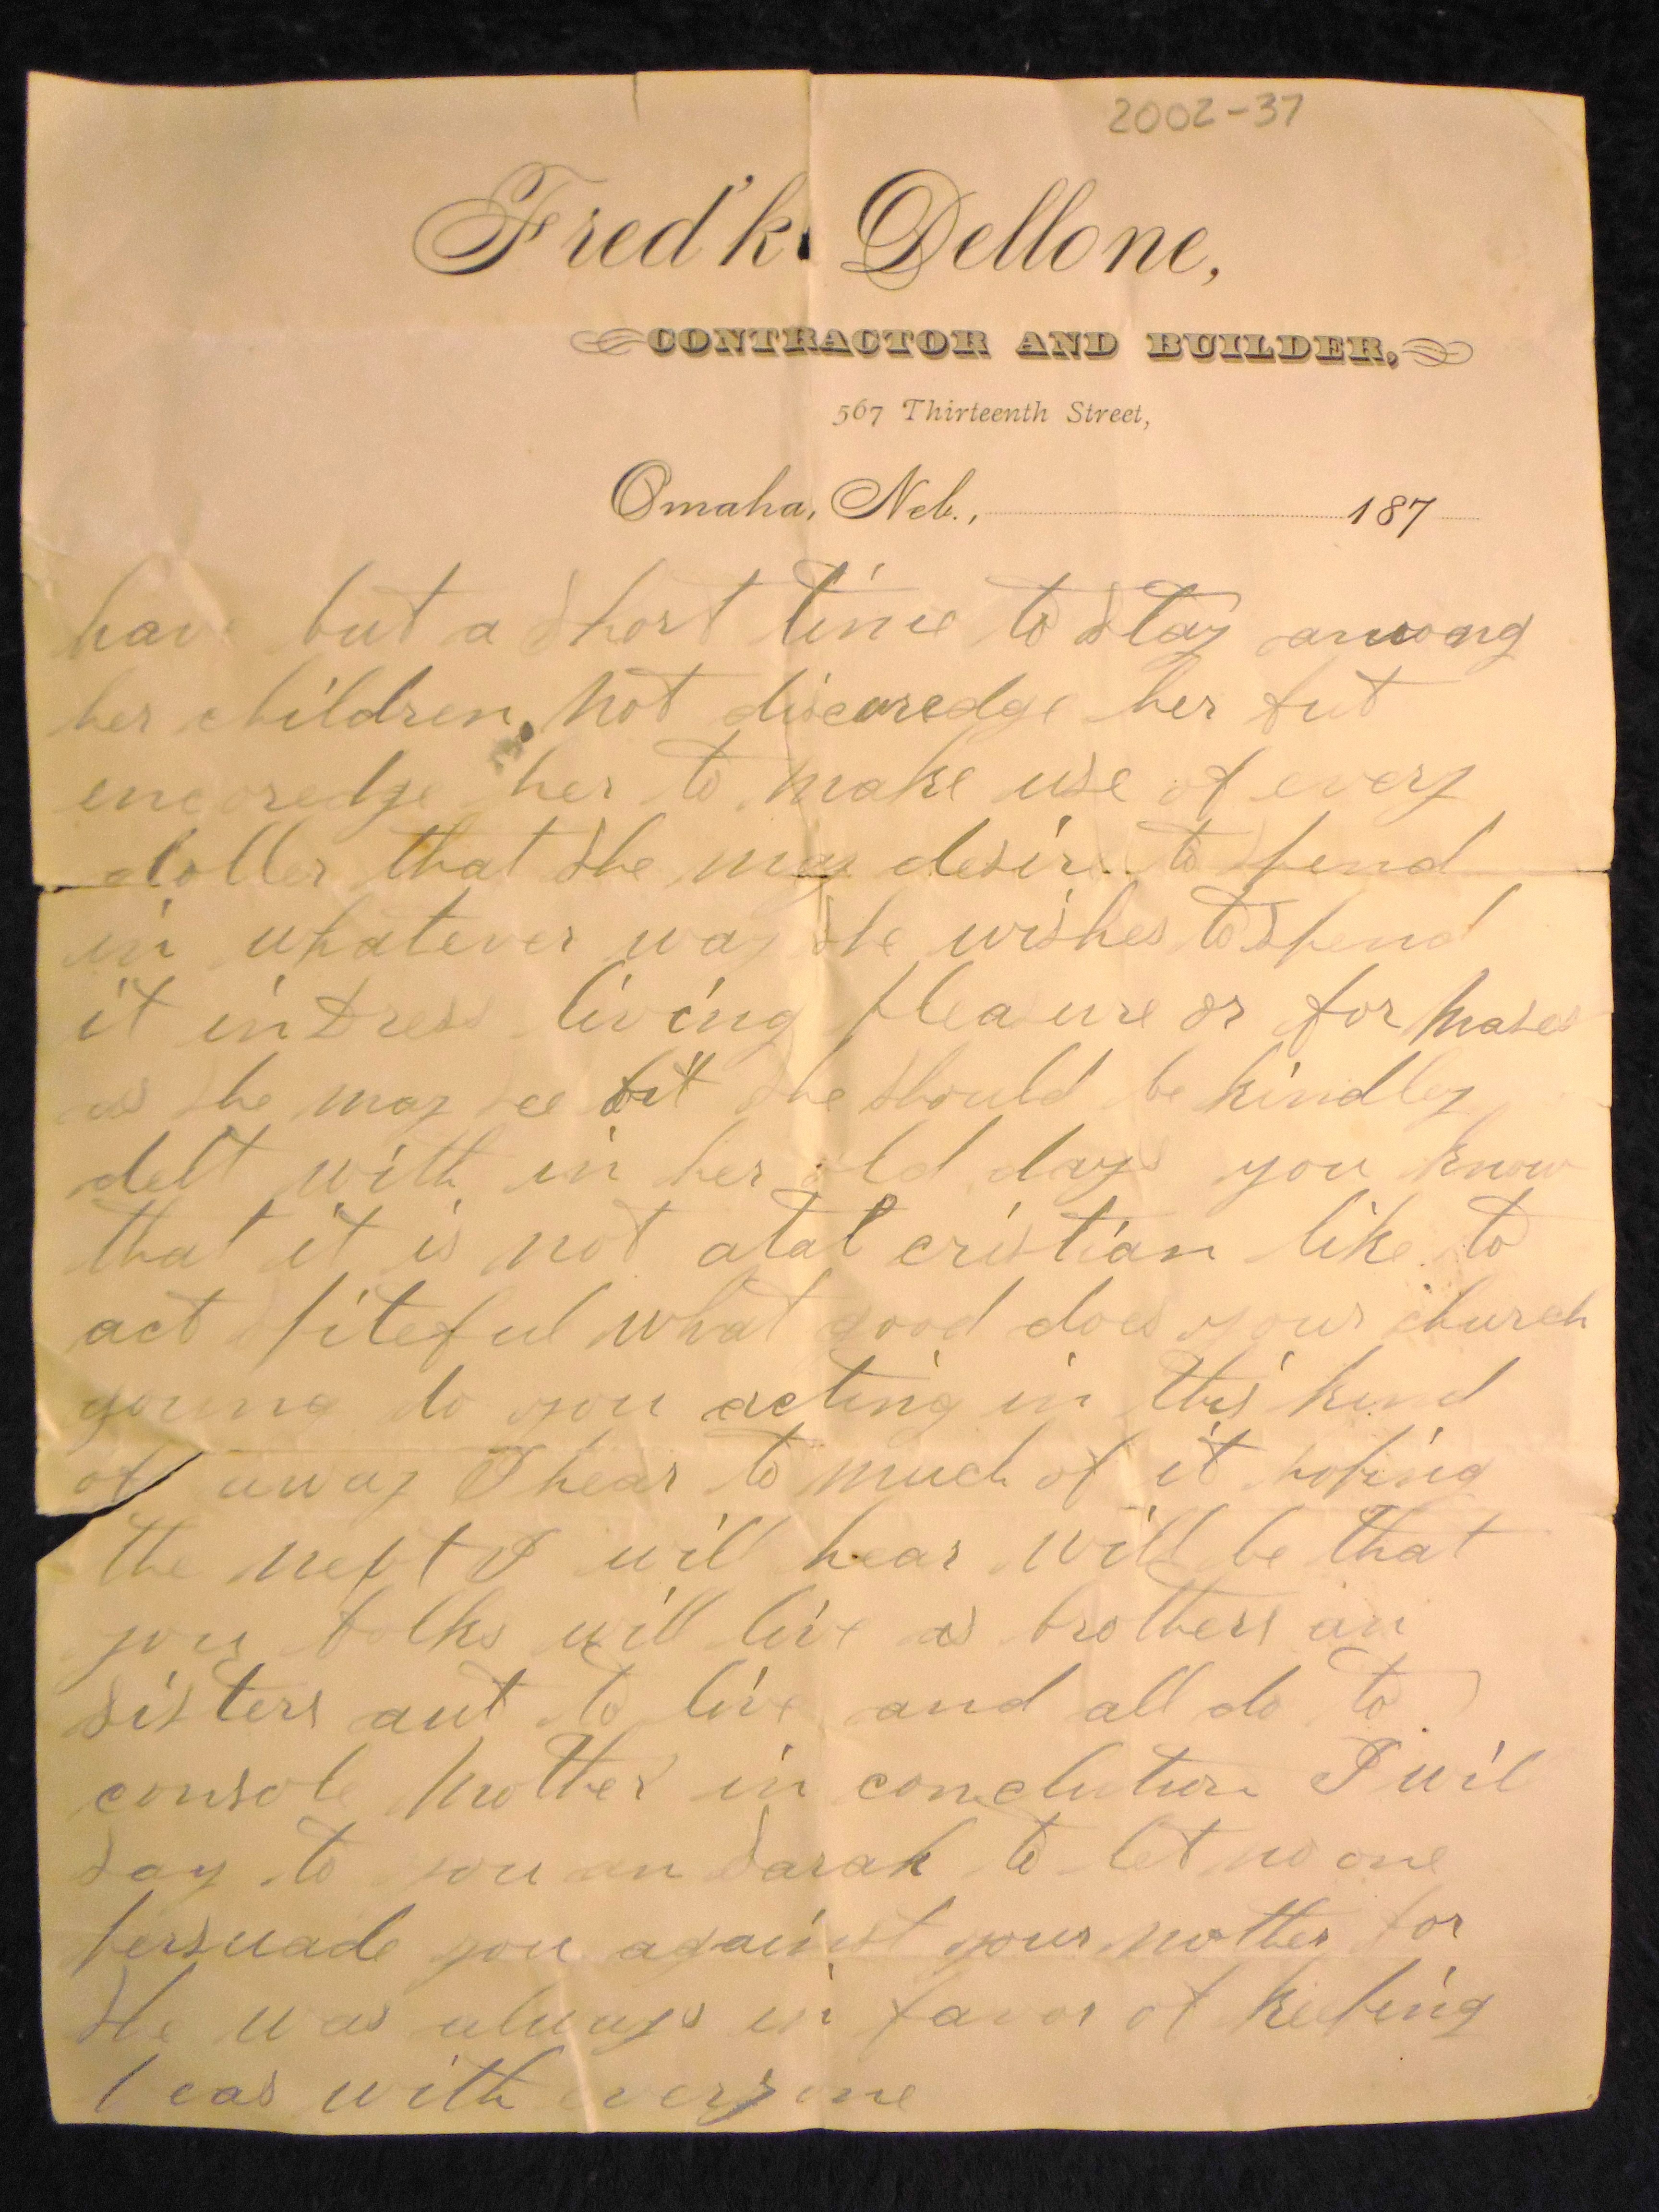 2002-37
Fred'k. Dellone,
CONTRACTOR AND BUILDER,
567 Thirteenth Street,
Omaha, Neb., 187
have but a short time to stay among
her children, not discoredge her but
encoredge her to make use of every
doller that she may desire to spend
in whatever way she wishes to spend
it in dress living pleasure or for
as she may see fit she should be kindley
delt with in her old days you know
that it is not atal cristian like to
act spiteful what good does your church
going do you acting in this kind
of away I hear to much of it hoping
the next I will hear will be that
you folks will live as brothers an
sisters aut to live and all do to
console mother in conclution I wil
say to you an Sarah to let no one
persuade you against your mother for
she was always in favor of keeping
peas with everyone